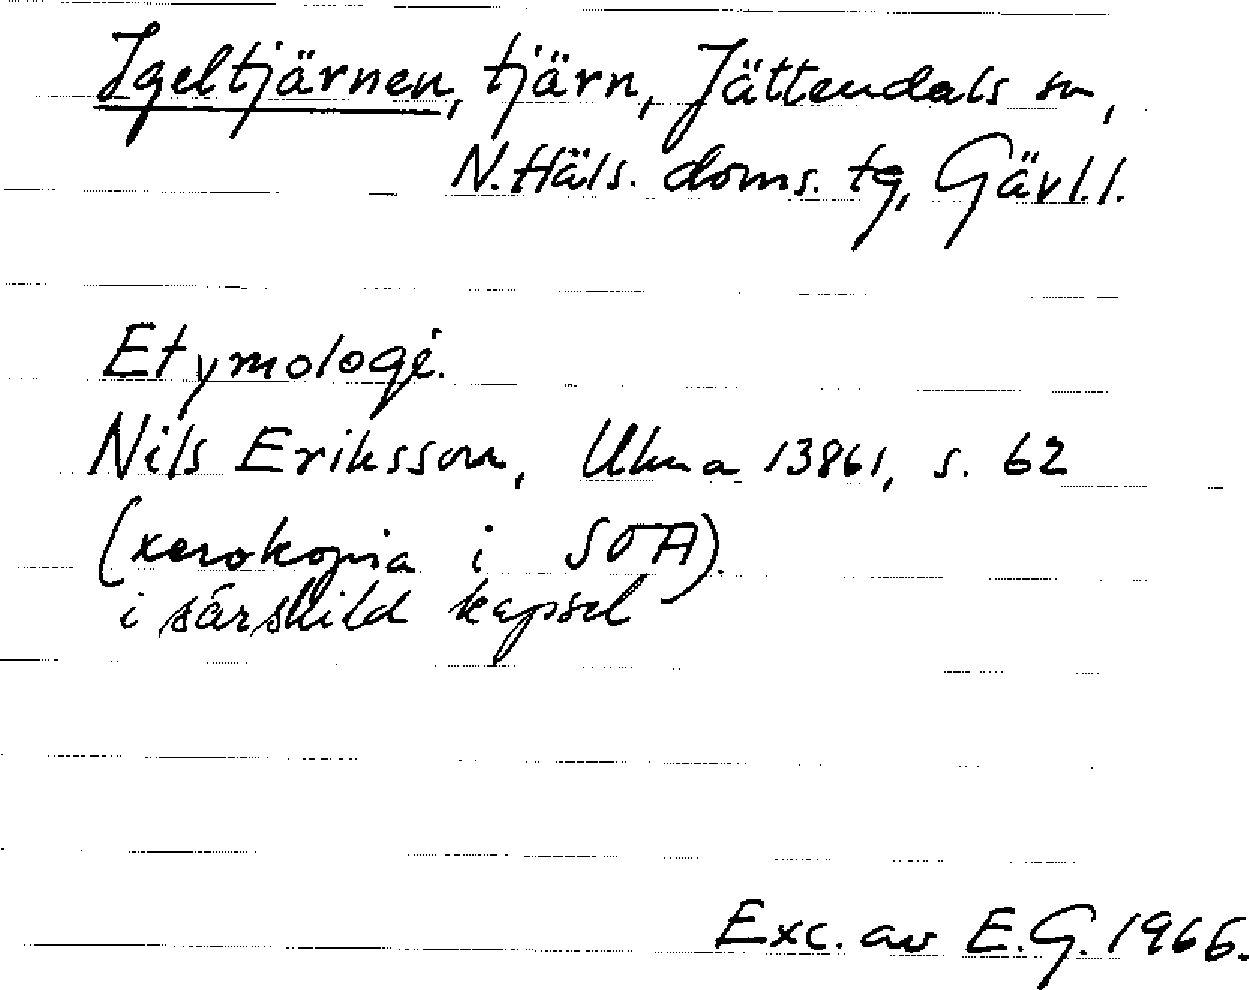 Igeltjärnen, tjärn, Jättendals sn,
N. Häls. doms. tg, Gävl. l.
Etymologi.
Nils Eriksson, Uluma 13861, s. 62
(xerokopia i SOA).
i särskild kapsel
Exc. av E.G. 1966.